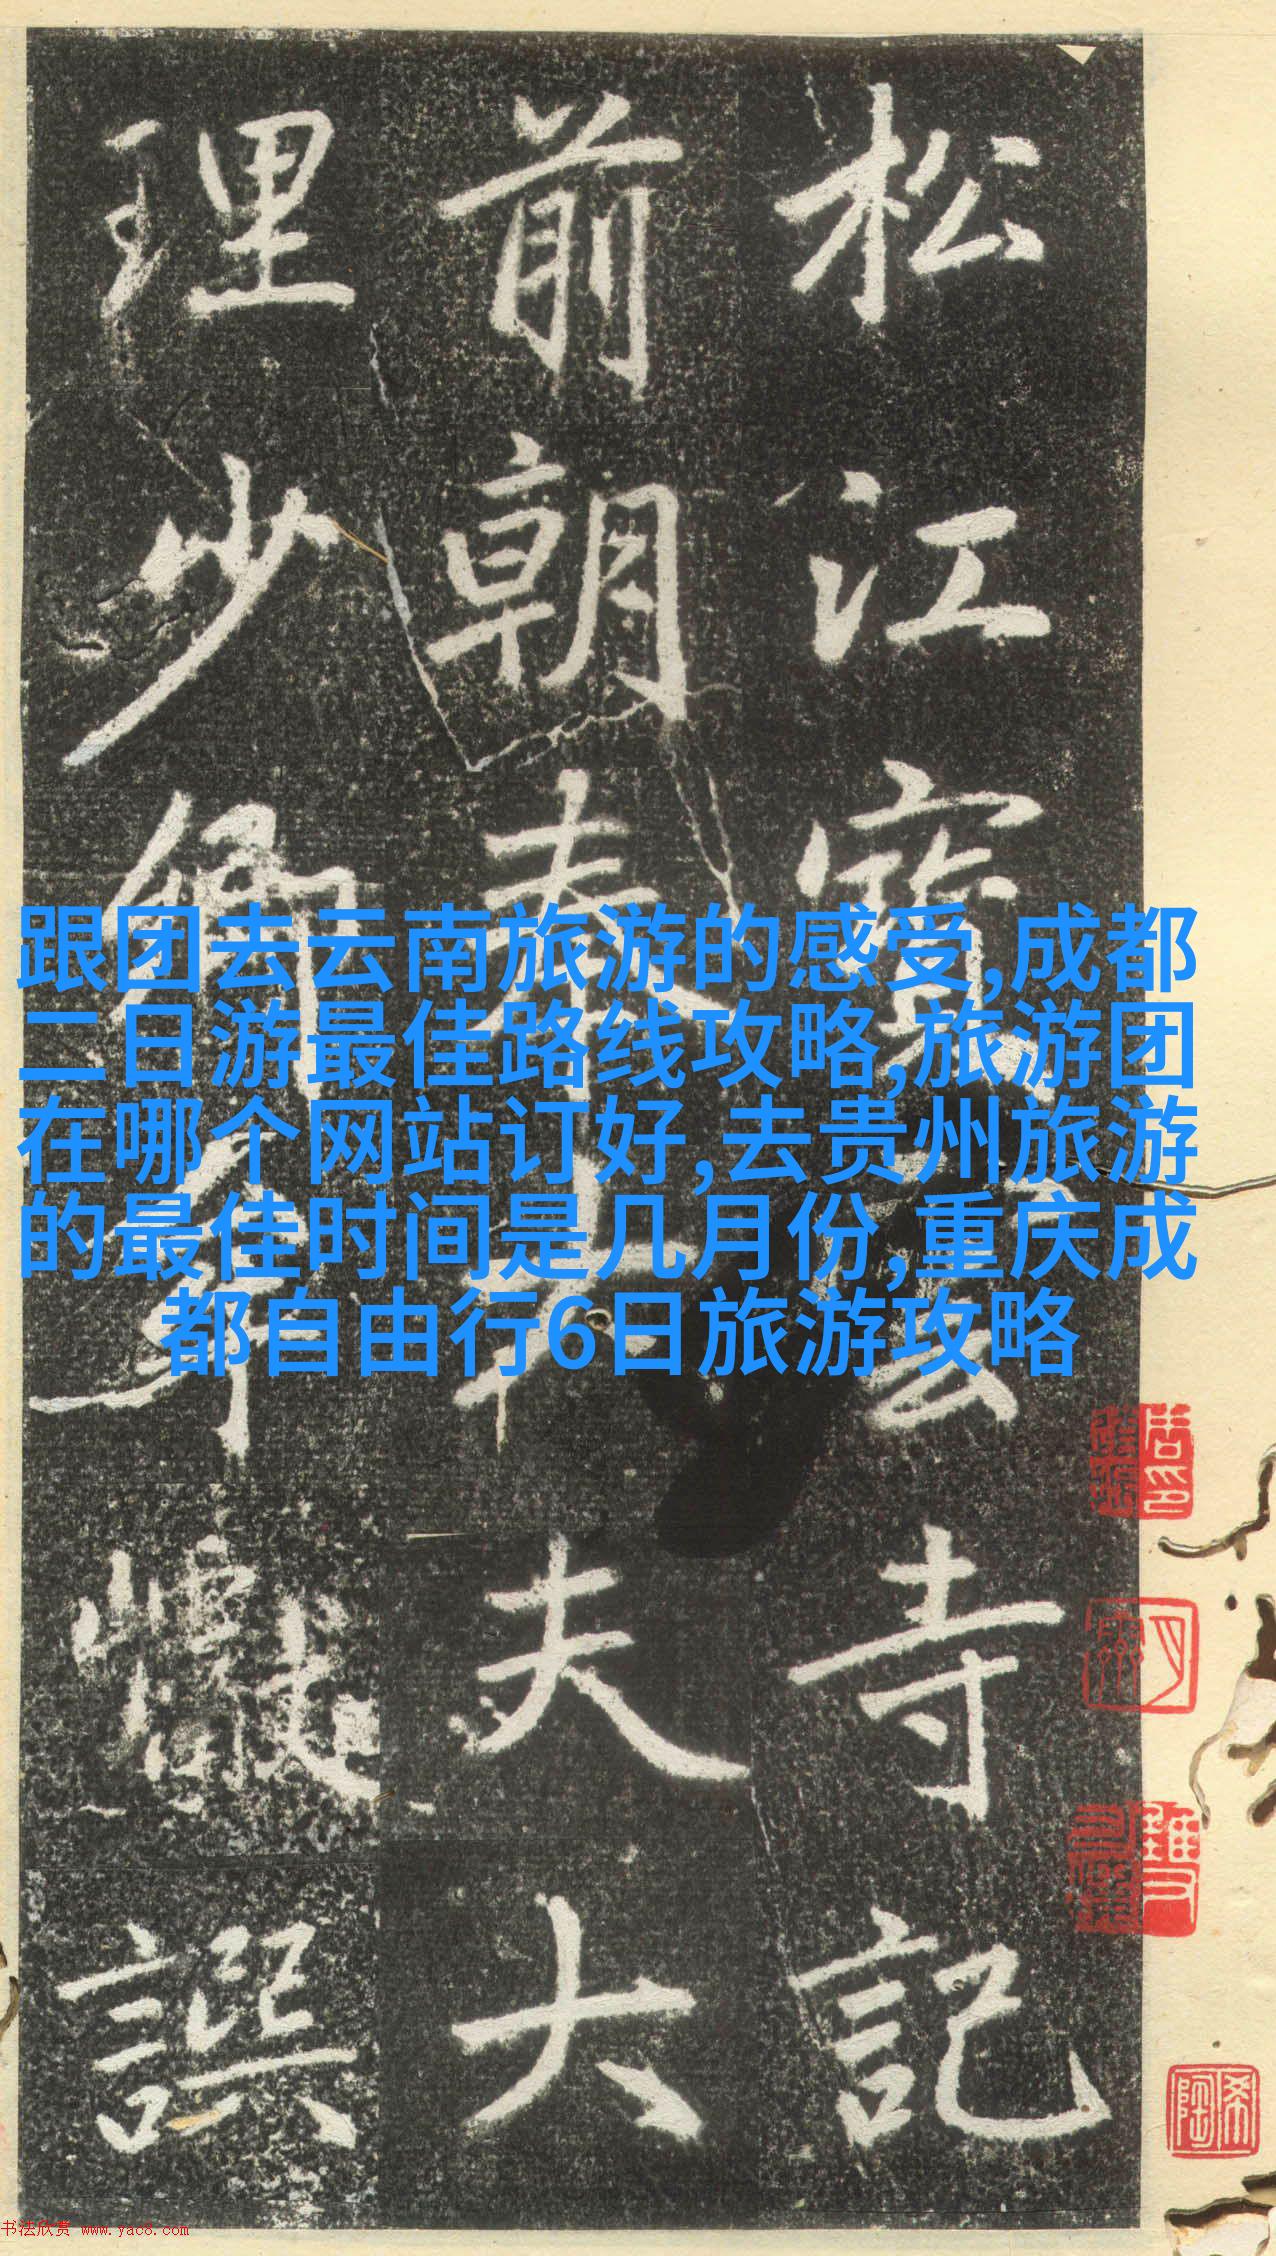 松江寶雲寺記
前朝奉大夫大
理少卿
譔
跟团去云南旅游的感受,成都
二日游最佳路线攻略,旅游团
在哪个网站订好,去贵州旅游
的最佳时间是几月份,重庆成
都自由行6日旅游攻略
书法欣赏 www.yac8.com